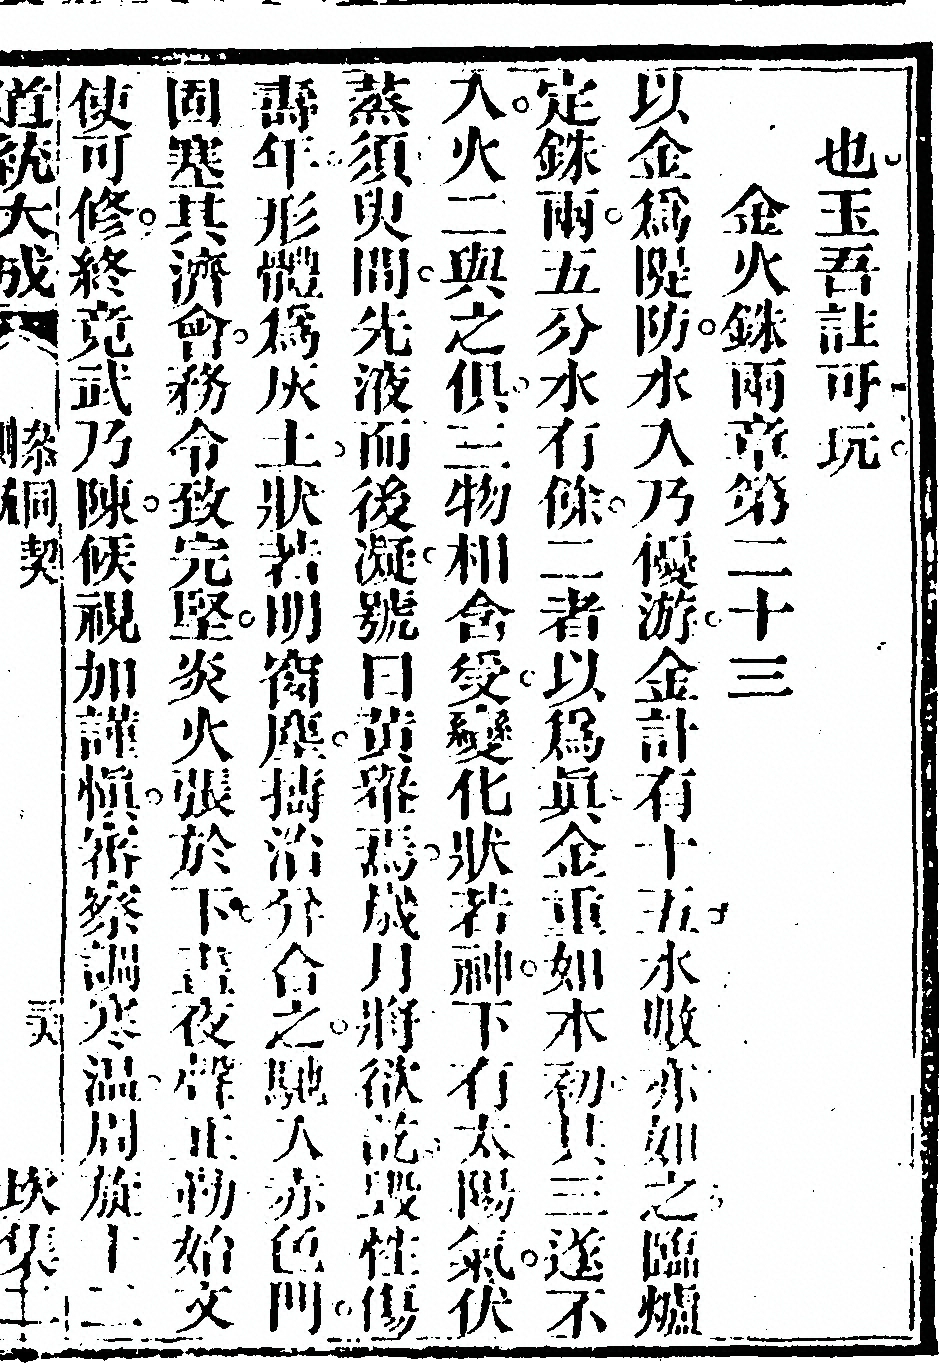 也玉吾註可玩
金火銖兩章第二十三
以金爲隄防水入乃優游金計有十五水數亦如之臨爐
定銖兩五分水有餘二者以爲眞金重如本初其三遂不
入火二與之俱三物相含受變化狀若神下有太陽氣伏
蒸須臾間先液而後凝號曰黃轝焉歲月將欲訖毀性傷
壽年形體爲灰土狀若明窗塵擣治幷合之馳入赤色門
固塞其濟會務令致完堅炎火張於下晝夜聲正勤始文
使可修終竟武乃陳候視加謹慎審察調寒温周旋十二
道統大成
參同契
坎集上